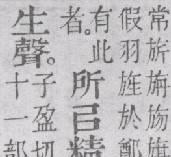 常旂
假羽旌於鄭
有此
者。
所㠯精
生聲。
子盈切
十一部